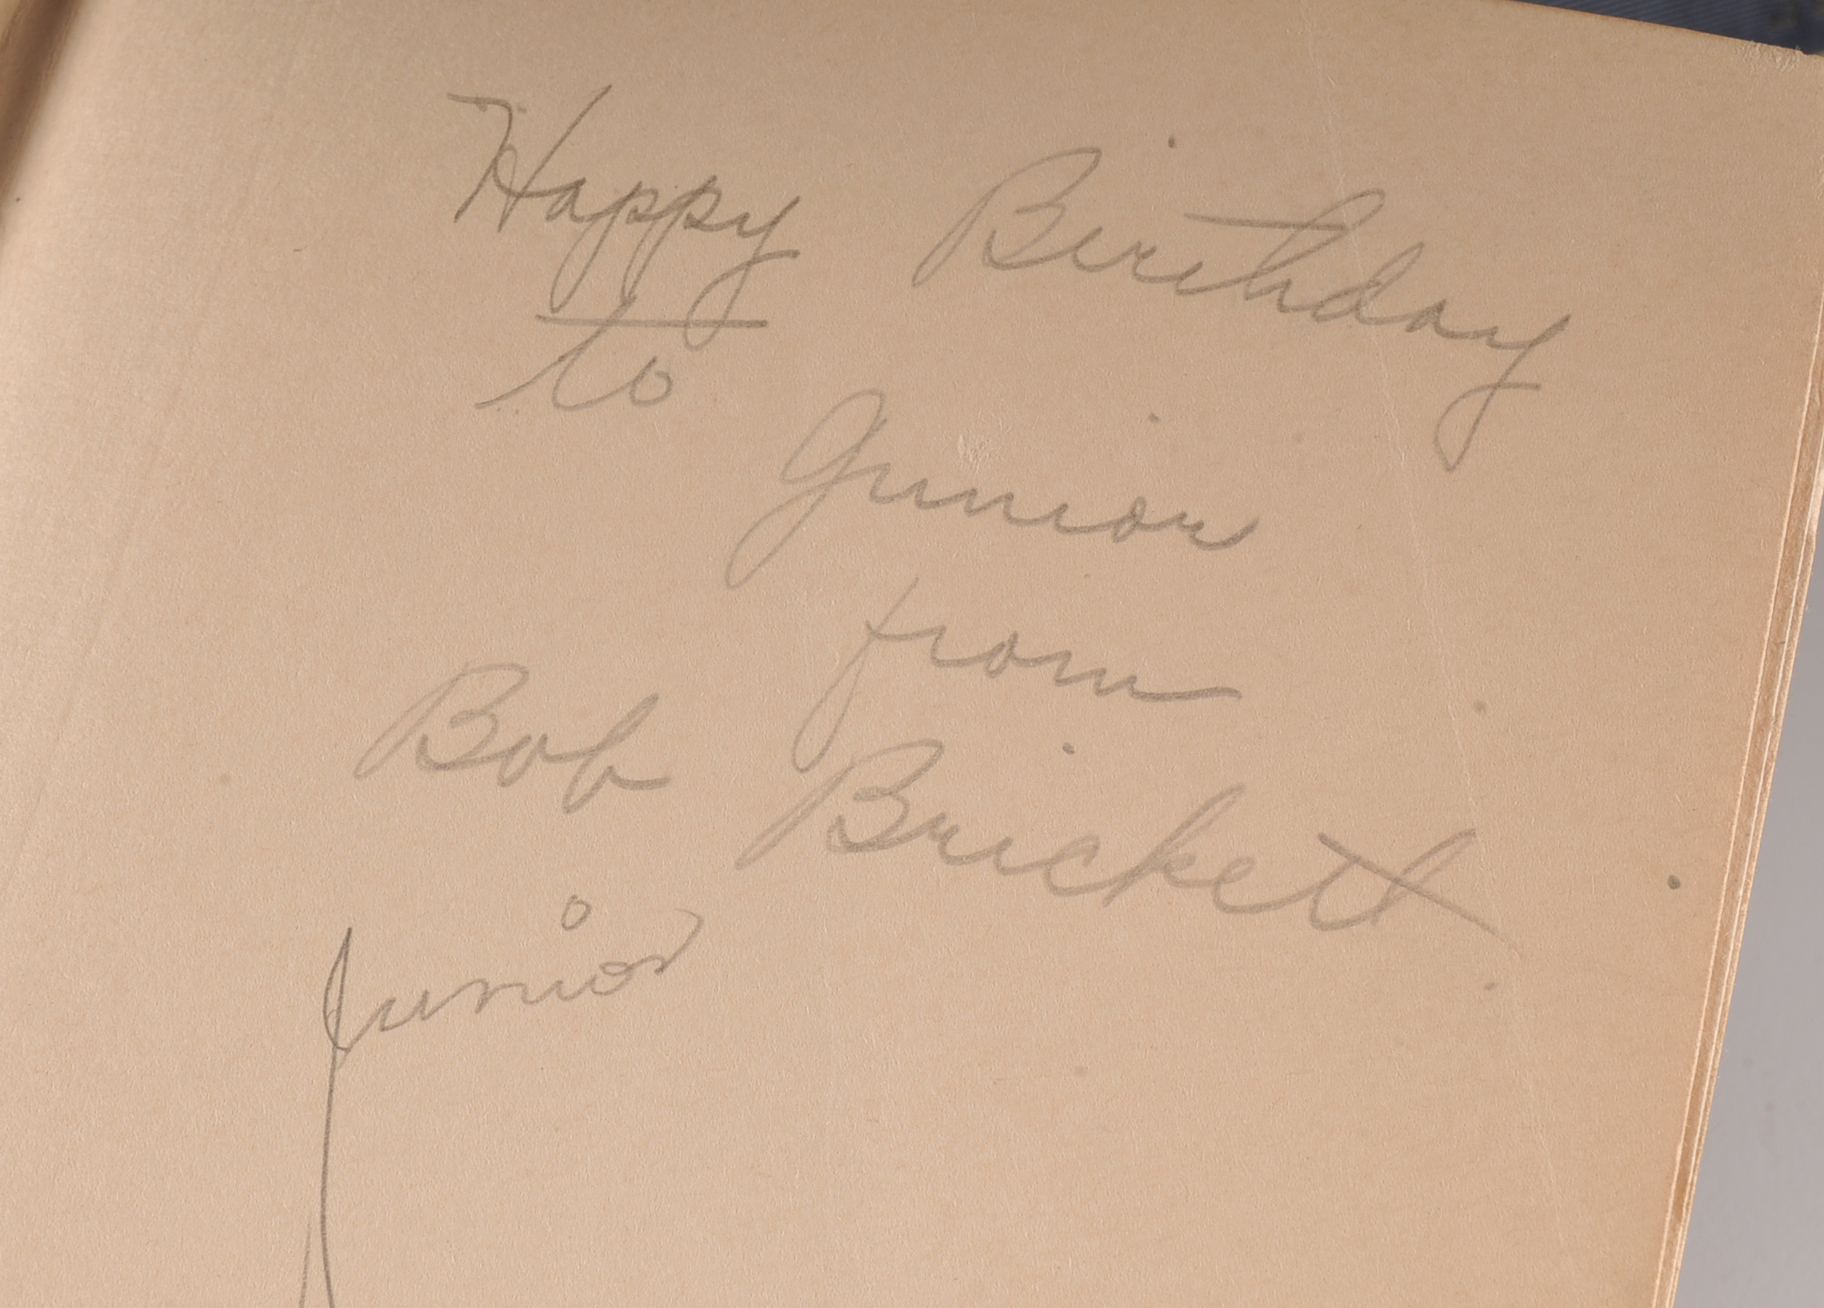 Happy Birthday
to
Junior
from
Bob Brickett
Junior